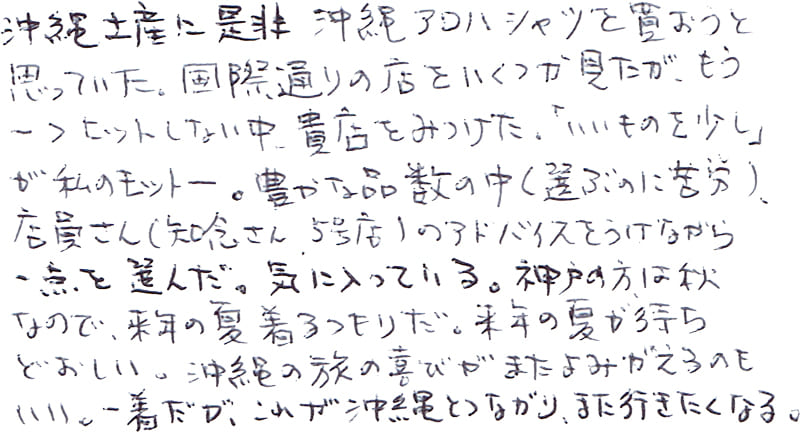 沖縄土産に是非 沖縄アロハシャツを買おうと
思っていた。国際通りの店をいくつか見たが、もう
一つヒットしない中、貴店をみつけた。「いいものを少し」
が私のモットー。豊かな品数の中(選ぶのに苦労)、
店員さん(知念さん 5号店)のアドバイスをうけながら
一点を選んだ。気に入っている。神戸の方は秋
なので、来年の夏着るつもりだ。来年の夏が待ち
どおしい。沖縄の旅の喜びがまたよみがえるのも
いい。一着だが、これが沖縄とつながり、また行きたくなる。